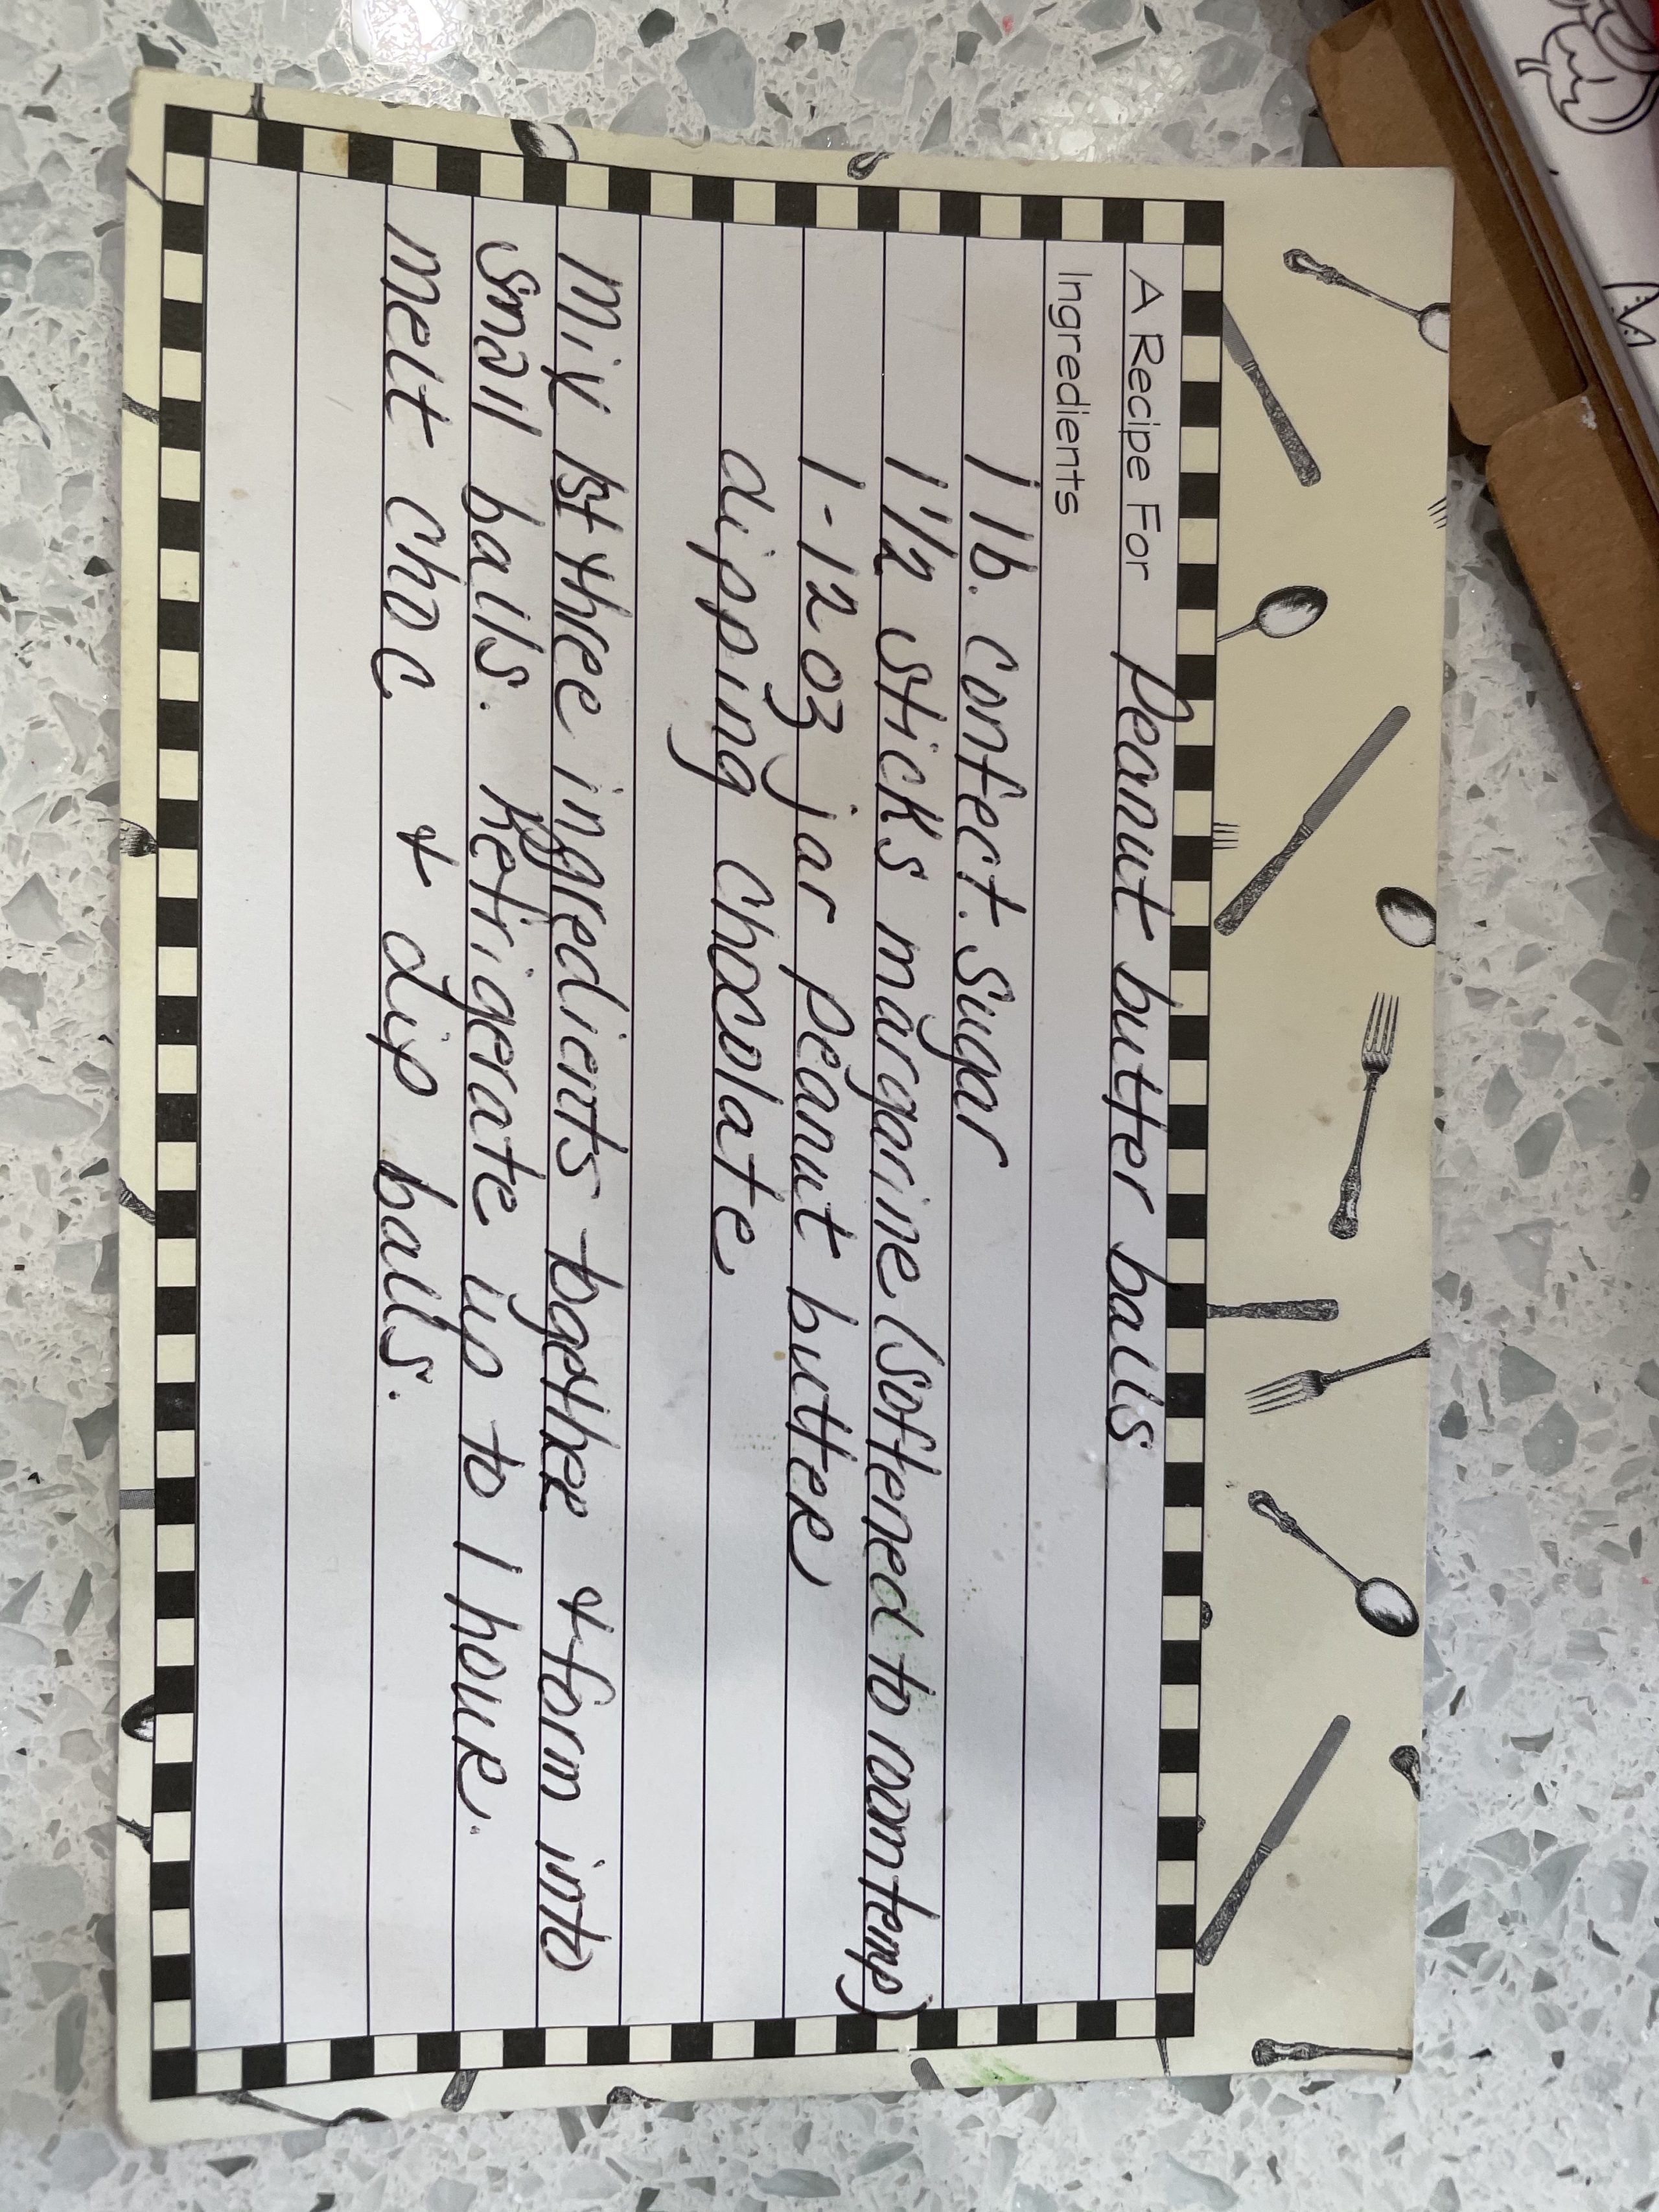 A Recipe For Peanut butter balls
Ingredients
1 lb. confect. Sugar
1 1/2 sticks margarine (softened to room temp)
1 - 12 oz jar peanut butter
dipping chocolate
Mix 1st three ingredients together & form into
small balls. Refrigerate up to 1 hour.
Melt choc. & dip balls.